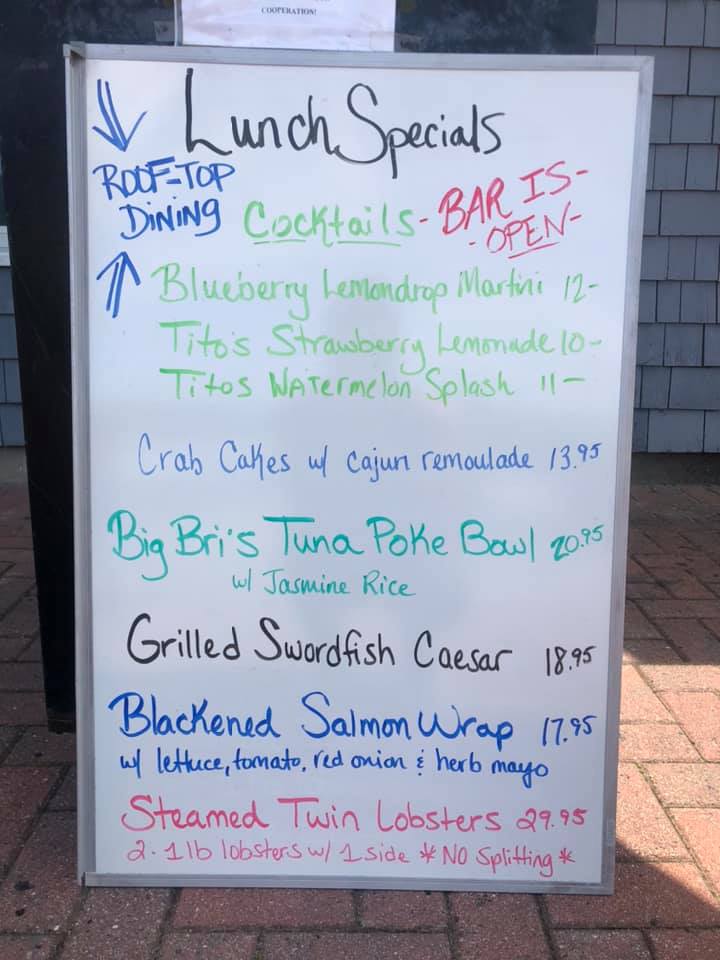 COOPERATION!
Lunch Specials
ROOF-TOP
DINING
Cocktails - BAR IS -
- OPEN -
Blueberry Lemondrop Martini 12-
Tito's Strawberry Lemonade 10-
Titos Watermelon Splash 11-
Crab Cakes w/ cajun remoulade 13.95
Big Bri's Tuna Poke Bowl 20.95
w/ Jasmine Rice
Grilled Swordfish Caesar 18.95
Blackened Salmon Wrap 17.95
w/ lettuce, tomato, red onion & herb mayo
Steamed Twin Lobsters 29.95
2 - 1 lb lobsters w/ 1 side * NO Splitting *